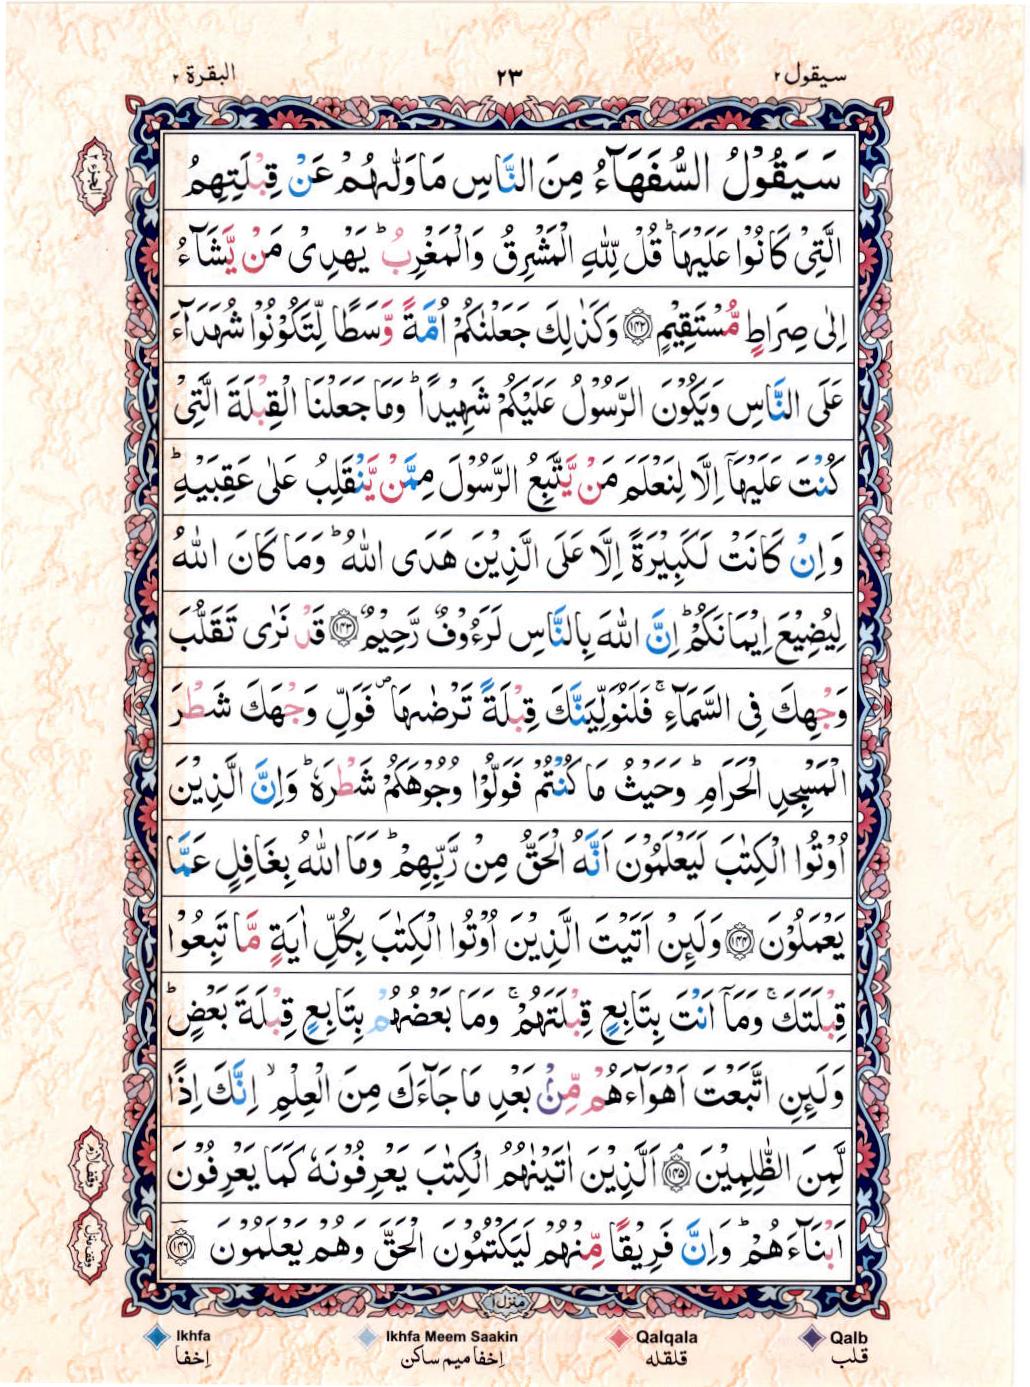 سيقول ٢
٢٣
البقرة ٢
الجزء ٢
سَيَقُوْلُ السُّفَهَآءُ مِنَ النَّاسِ مَا وَلّٰىهُمْ عَنْ قِبْلَتِهِمُ
الَّتِىْ كَانُوْا عَلَيْهَا ؕ قُلْ لِّلّٰهِ الْمَشْرِقُ وَالْمَغْرِبُ ؕ يَهْدِىْ مَنْ يَّشَآءُ
اِلٰى صِرَاطٍ مُّسْتَقِيْمٍ ۝۱۴۲ وَكَذٰلِكَ جَعَلْنٰكُمْ اُمَّةً وَّسَطًا لِّتَكُوْنُوْا شُهَدَآءَ
عَلَى النَّاسِ وَيَكُوْنَ الرَّسُوْلُ عَلَيْكُمْ شَهِيْدًا ؕ وَمَا جَعَلْنَا الْقِبْلَةَ الَّتِىْ
كُنْتَ عَلَيْهَآ اِلَّا لِنَعْلَمَ مَنْ يَّتَّبِعُ الرَّسُوْلَ مِمَّنْ يَّنْقَلِبُ عَلٰى عَقِبَيْهِ ؕ
وَاِنْ كَانَتْ لَكَبِيْرَةً اِلَّا عَلَى الَّذِيْنَ هَدَى اللّٰهُ ؕ وَمَا كَانَ اللّٰهُ
لِيُضِيْعَ اِيْمَانَكُمْ ؕ اِنَّ اللّٰهَ بِالنَّاسِ لَرَءُوْفٌ رَّحِيْمٌ ۝۱۴۳ قَدْ نَرٰى تَقَلُّبَ
وَجْهِكَ فِى السَّمَآءِ ۚ فَلَنُوَلِّيَنَّكَ قِبْلَةً تَرْضٰىهَا ۖ فَوَلِّ وَجْهَكَ شَطْرَ
الْمَسْجِدِ الْحَرَامِ ؕ وَحَيْثُ مَا كُنْتُمْ فَوَلُّوْا وُجُوْهَكُمْ شَطْرَهٗ ؕ وَاِنَّ الَّذِيْنَ
اُوْتُوا الْكِتٰبَ لَيَعْلَمُوْنَ اَنَّهُ الْحَقُّ مِنْ رَّبِّهِمْ ؕ وَمَا اللّٰهُ بِغَافِلٍ عَمَّا
يَعْمَلُوْنَ ۝۱۴۴ وَلَئِنْ اَتَيْتَ الَّذِيْنَ اُوْتُوا الْكِتٰبَ بِكُلِّ اٰيَةٍ مَّا تَبِعُوْا
قِبْلَتَكَ ۚ وَمَآ اَنْتَ بِتَابِعٍ قِبْلَتَهُمْ ۚ وَمَا بَعْضُهُمْ بِتَابِعٍ قِبْلَةَ بَعْضٍ ؕ
وَلَئِنِ اتَّبَعْتَ اَهْوَآءَهُمْ مِّنْۢ بَعْدِ مَا جَآءَكَ مِنَ الْعِلْمِ ۙ اِنَّكَ اِذًا
لَّمِنَ الظّٰلِمِيْنَ ۝۱۴۵ اَلَّذِيْنَ اٰتَيْنٰهُمُ الْكِتٰبَ يَعْرِفُوْنَهٗ كَمَا يَعْرِفُوْنَ
اَبْنَآءَهُمْ ؕ وَاِنَّ فَرِيْقًا مِّنْهُمْ لَيَكْتُمُوْنَ الْحَقَّ وَهُمْ يَعْلَمُوْنَ ۝۱۴۶
وقف لازم
وقف منزل
منزل ۱
Ikhfa
Ikhfa Meem Saakin
Qalqala
Qalb
اِخفا
اِخفا میم ساکن
قلقله
قلب